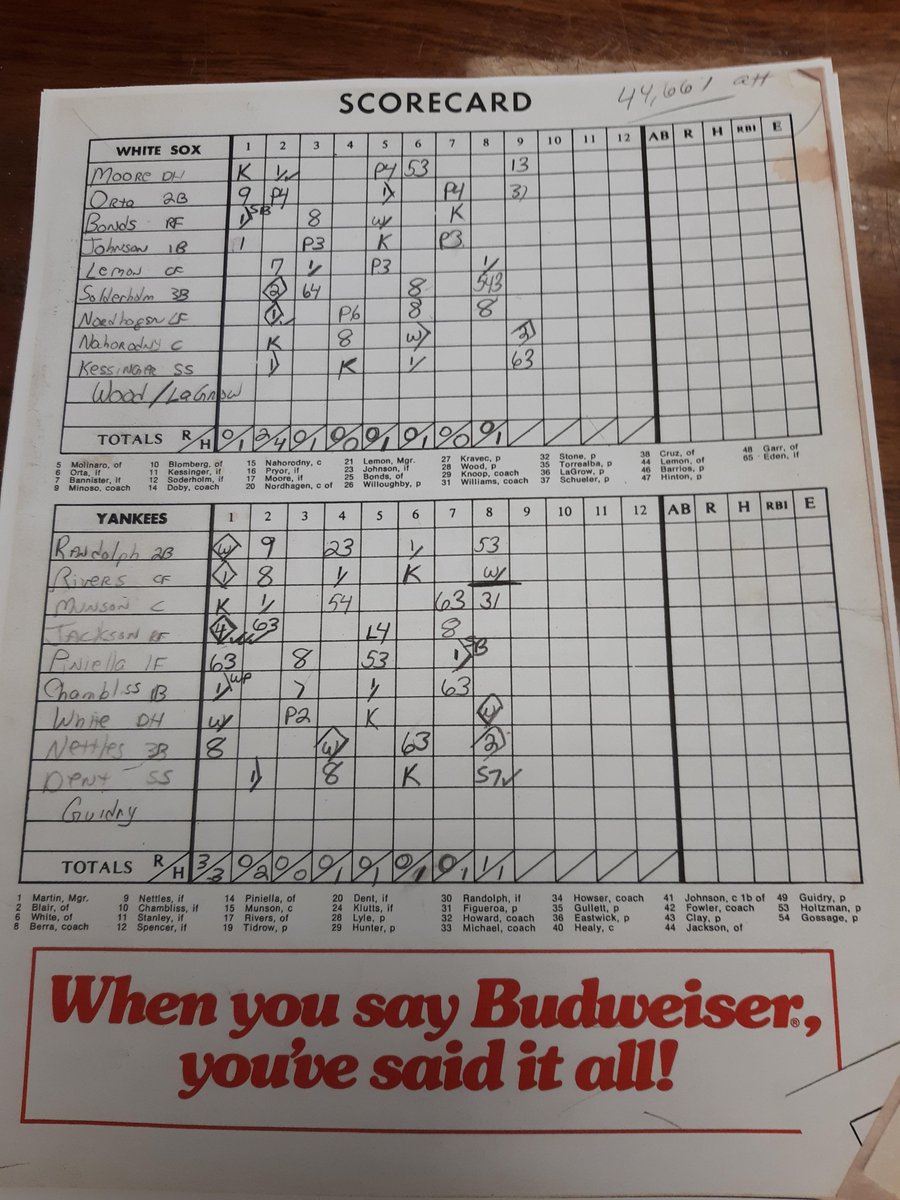 SCORECARD
44,667 att
WHITE SOX 1 2 3 4 5 6 7 8 9 10 11 12 AB R H RBI E
Moore DH K 1/ P4 53 13
Orta 2B 9 P4 1 P4 31
Bonds RF 1 SB 8 W K
Johnson 1B 1 P3 K P3
Lemon CF 7 1/ P3 1/
Solderholm 3B 2 64 8 543
Nordhagen LF 1 P6 8 8
Nahorodny C K 8 W 2
Kessinger SS 1 K 1/ 63
Wood/LaGrow
TOTALS R/H 0/1 2/4 0/1 0/0 0/1 0/1 0/0 0/1
5 Molinaro, of 10 Blomberg, of 15 Nahorodny, c 21 Lemon, Mgr. 27 Kravec, p 32 Stone, p 38 Cruz, of 48 Garr, of
6 Orta, if 11 Kessinger, if 16 Pryor, if 23 Johnson, if 28 Wood, p 35 Torrealba, p 44 Lemon, of 65 Eden, if
7 Bannister, if 12 Soderholm, if 17 Moore, if 25 Bonds, of 29 Knoop, coach 36 LaGrow, p 46 Barrios, p
9 Minoso, coach 14 Doby, coach 20 Nordhagen, c of 26 Willoughby, p 31 Williams, coach 37 Schueler, p 47 Hinton, p
YANKEES 1 2 3 4 5 6 7 8 9 10 11 12 AB R H RBI E
Randolph 2B W 9 23 1/ 53
Rivers CF 1 8 1/ K W
Munson C K 1/ 54 63 31
Jackson RF 4 63 L4 8
Piniella LF 63 8 53 1 SB
Chambliss 1B 1/ WP 7 1/ 63
White DH W P2 K W
Nettles 3B 8 W 63 2
Dent SS 1 8 K 57
Guidry
TOTALS R/H 3/3 0/2 0/0 0/1 0/1 0/1 0/1 1/1
1 Martin, Mgr. 9 Nettles, if 14 Piniella, of 20 Dent, if 30 Randolph, if 34 Howser, coach 41 Johnson, c 1b of 49 Guidry, p
2 Blair, of 10 Chambliss, if 15 Munson, c 24 Klutts, if 31 Figueroa, p 35 Gullett, p 42 Fowler, coach 53 Holtzman, p
6 White, of 11 Stanley, if 17 Rivers, of 28 Lyle, p 32 Howard, coach 36 Eastwick, p 43 Clay, p 54 Gossage, p
8 Berra, coach 12 Spencer, if 19 Tidrow, p 29 Hunter, p 33 Michael, coach 40 Healy, c 44 Jackson, of
When you say Budweiser®,
you've said it all!